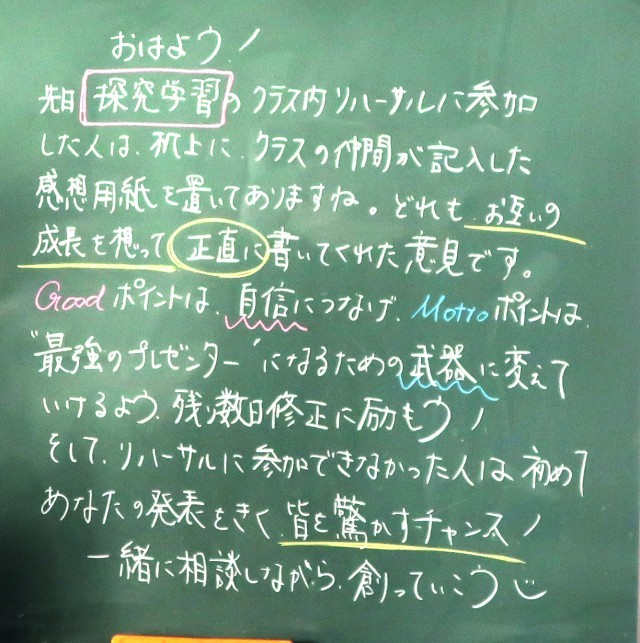 おはよう!
先日 探究学習の クラス内リハーサルに参加
した人は、机上に、クラスの仲間が記入した
感想用紙を置いてありますね。どれも、お互いの
成長を想って 正直に書いてくれた意見です。
Goodポイントは、自信につなげ、Mottoポイントは、
"最強のプレゼンター"になるための武器に変えて
いけるよう、残り数日修正に励もう!
そして、リハーサルに参加できなかった人は、初めて
あなたの発表をきく皆を驚かすチャンス!
一緒に相談しながら、創っていこう